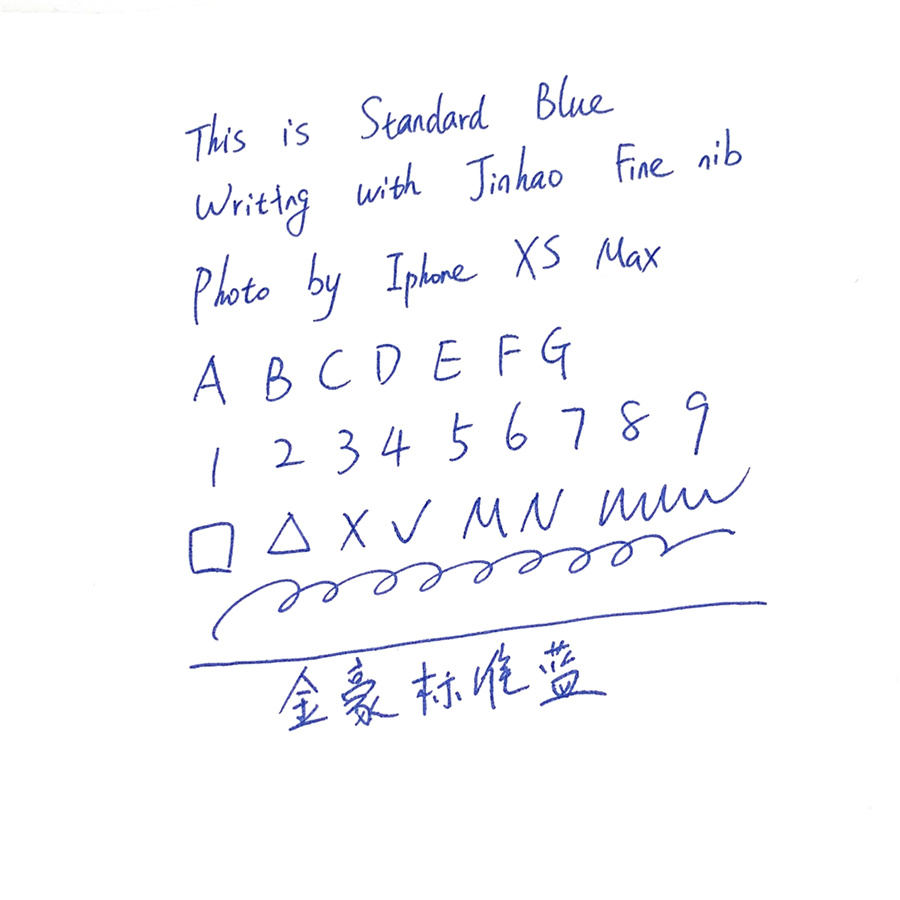 This is Standard Blue
Writing with Jinhao Fine nib
Photo by Iphone XS Max
A B C D E F G
1 2 3 4 5 6 7 8 9
□ △ X √ M N
金豪标准蓝